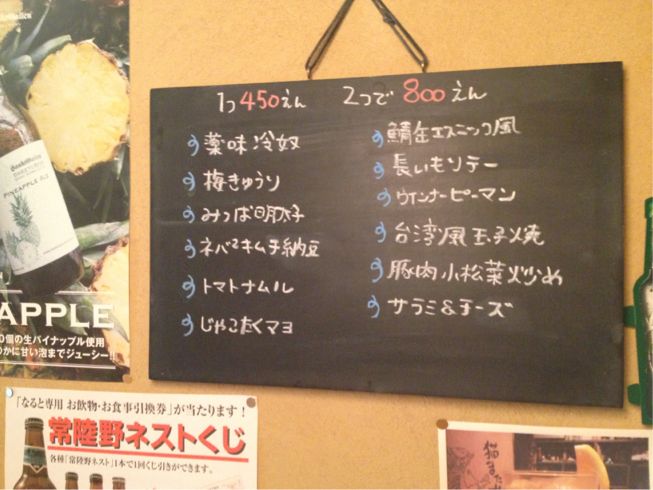 1つ450えん 2つで800えん
薬味冷奴
梅きゅうり
みつば明太子
ネバ2キムチ納豆
トマトナムル
じゃこたくマヨ
鯖缶エスニック風
長いもソテー
ウインナーピーマン
台湾風玉子焼
豚肉小松菜炒め
サラミ&チーズ
PINEAPPLE ALE
APPLE
0個の生パイナップル使用
かに甘い泡までジューシー!!
「なると専用 お飲物・お食事引換券」が当たります!
常陸野ネストくじ
各種「常陸野ネスト」1本で1回くじ引きができます。